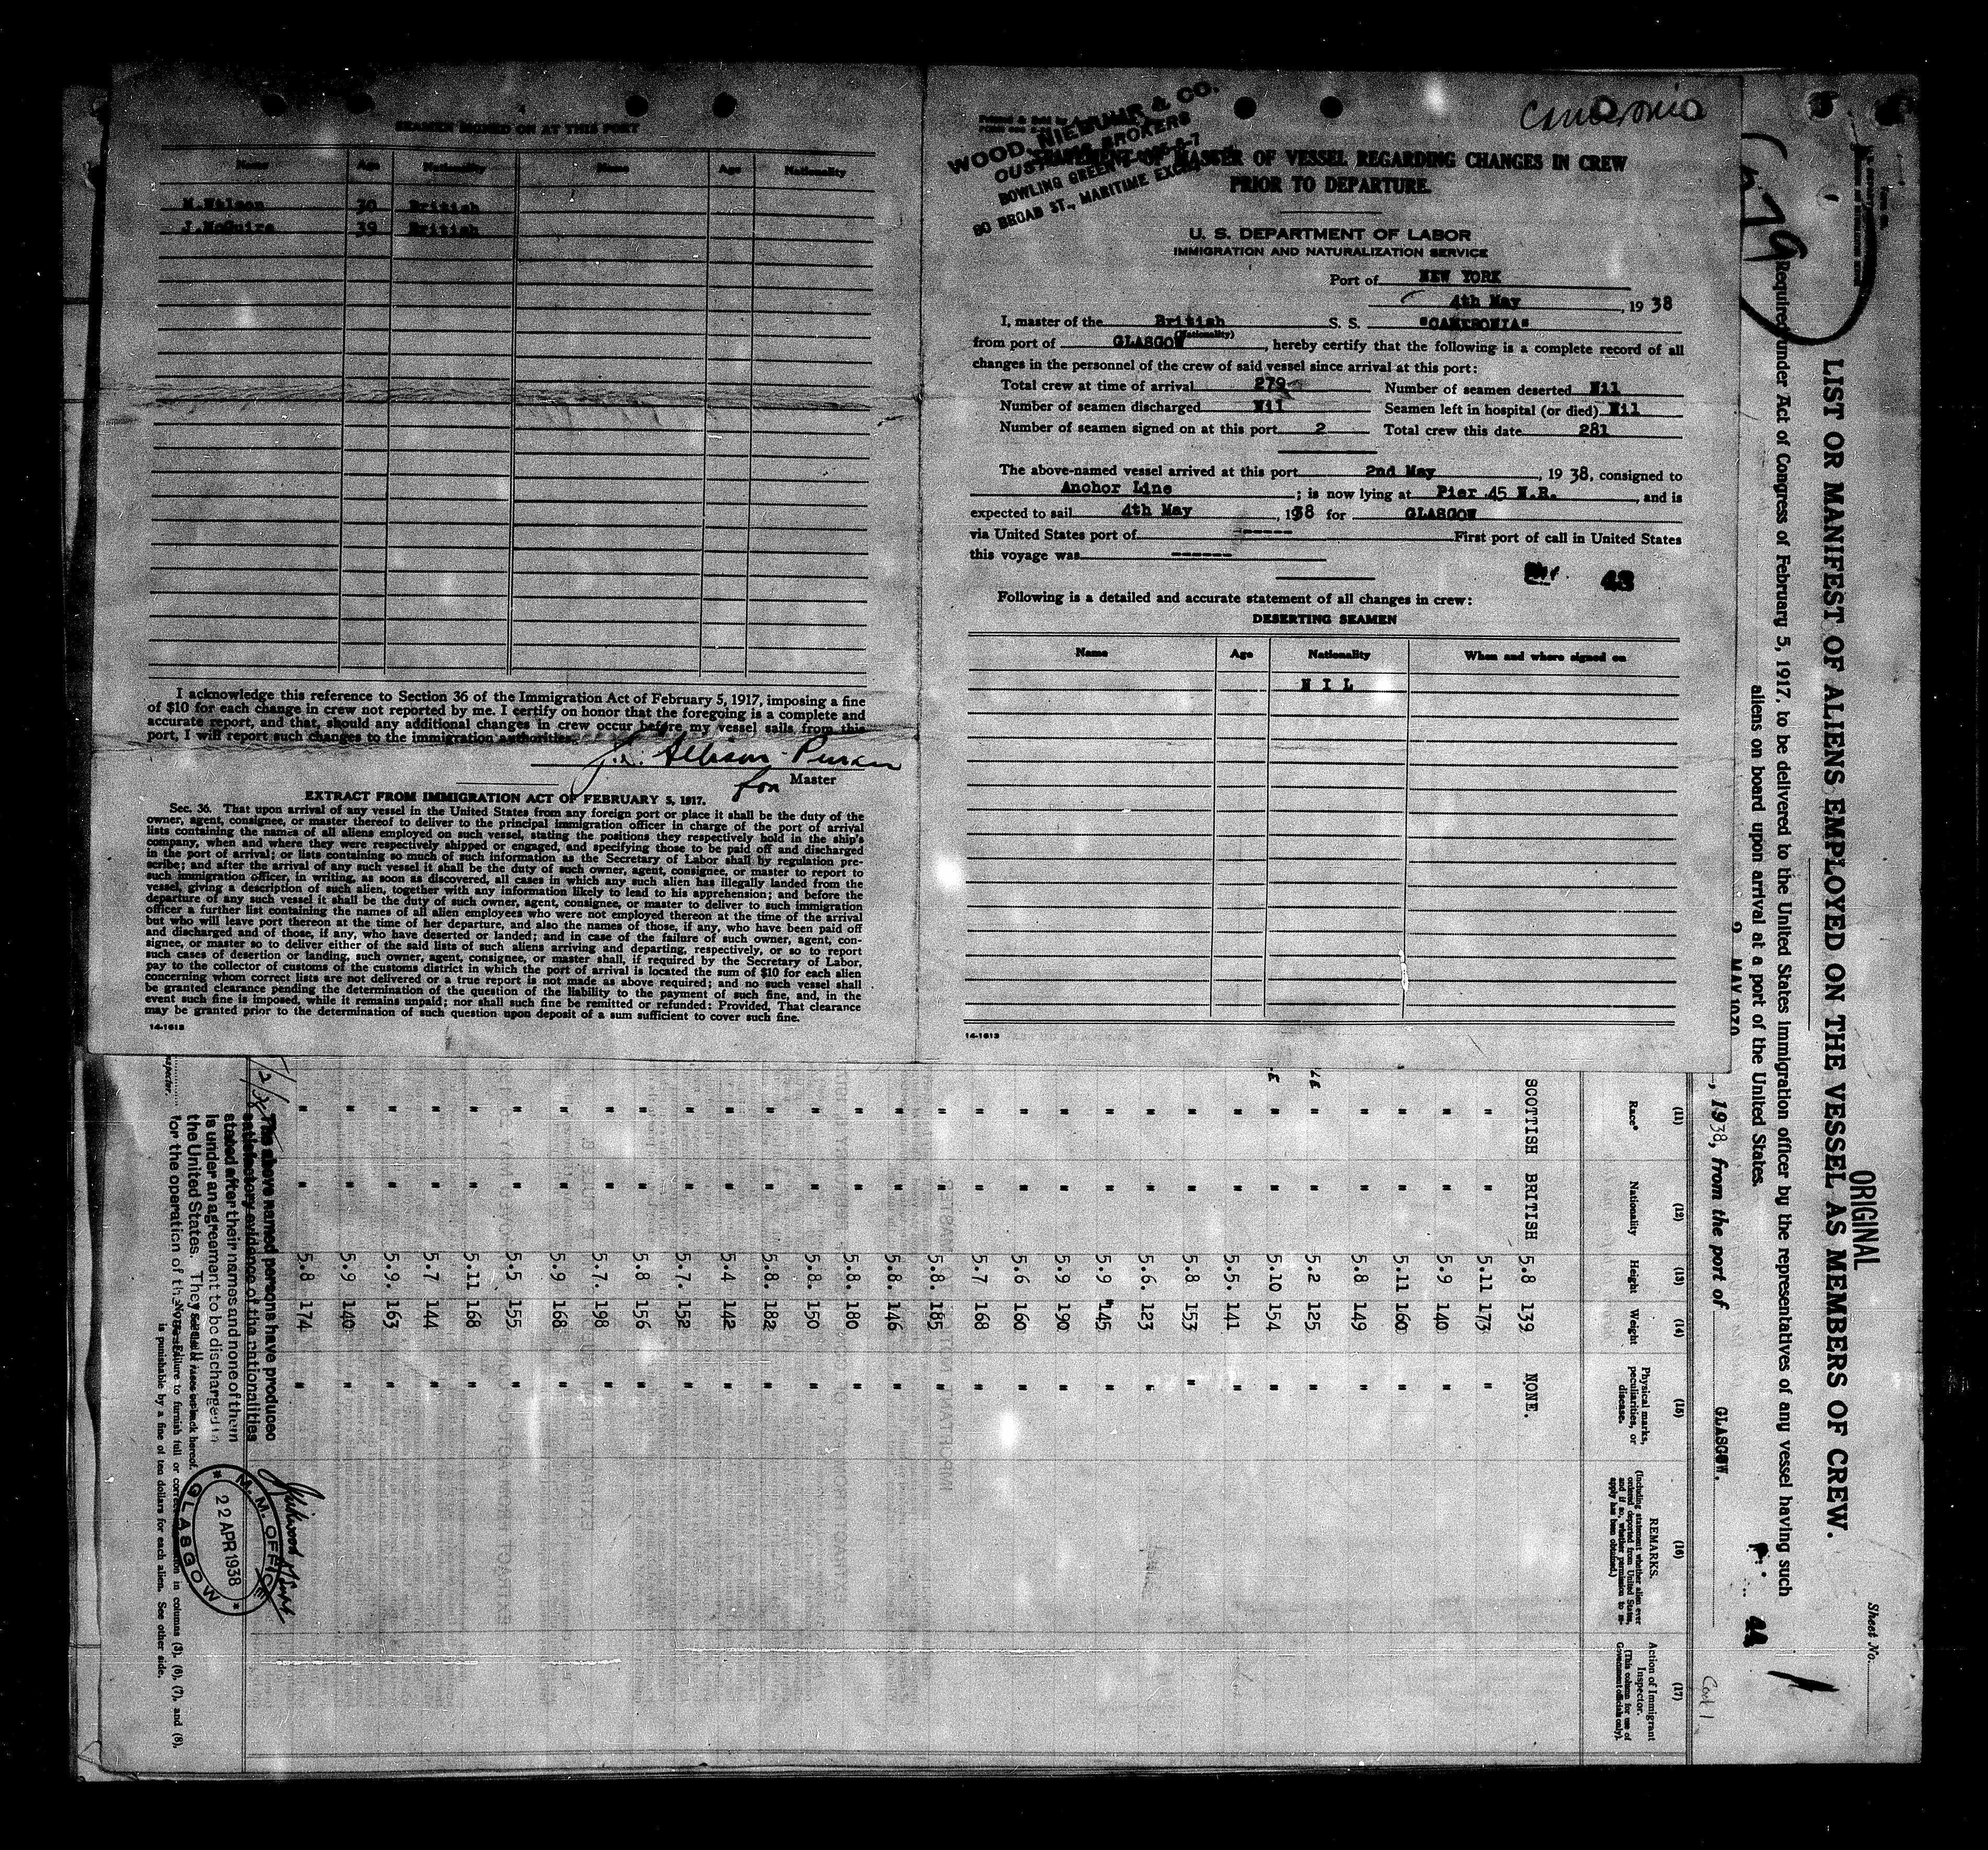 4
SEAMEN SIGNED ON AT THIS PORT
Name Age Nationality Name Age Nationality
M.Wilson 30 British
J.McGuire 39 British
I acknowledge this reference to Section 36 of the Immigration Act of February 5, 1917, imposing a fine
of $10 for each change in crew not reported by me. I certify on honor that the foregoing is a complete and
accurate report, and that, should any additional changes in crew occur before my vessel sails from this
port, I will report such changes to the immigration authorities.
for Master
EXTRACT FROM IMMIGRATION ACT OF FEBRUARY 5, 1917.
Sec. 36. That upon arrival of any vessel in the United States from any foreign port or place it shall be the duty of the
owner, agent, consignee, or master thereof to deliver to the principal immigration officer in charge of the port of arrival
lists containing the names of all aliens employed on such vessel, stating the positions they respectively hold in the ship's
company, when and where they were respectively shipped or engaged, and specifying those to be paid off and discharged
in the port of arrival; or lists containing so much of such information as the Secretary of Labor shall by regulation pre-
scribe; and after the arrival of any such vessel it shall be the duty of such owner, agent, consignee, or master to report to
such immigration officer, in writing, as soon as discovered, all cases in which any such alien has illegally landed from the
vessel, giving a description of such alien, together with any information likely to lead to his apprehension; and before the
departure of any such vessel it shall be the duty of such owner, agent, consignee, or master to deliver to such immigration
officer a further list containing the names of all alien employees who were not employed thereon at the time of the arrival
but who will leave port thereon at the time of her departure, and also the names of those, if any, who have been paid off
and discharged and of those, if any, who have deserted or landed; and in case of the failure of such owner, agent, con-
signee, or master so to deliver either of the said lists of such aliens arriving and departing, respectively, or so to report
such cases of desertion or landing, such owner, agent, consignee, or master shall, if required by the Secretary of Labor,
pay to the collector of customs of the customs district in which the port of arrival is located the sum of $10 for each alien
concerning whom correct lists are not delivered or a true report is not made as above required; and no such vessel shall
be granted clearance pending the determination of the question of the liability to the payment of such fine, and, in the
event such fine is imposed, while it remains unpaid; nor shall such fine be remitted or refunded: Provided, That clearance
may be granted prior to the determination of such question upon deposit of a sum sufficient to cover such fine.
14-1613
Cameronia
WOOD, NIEBUHR & CO.
CUSTOMS BROKERS
BOWLING GREEN
80 BROAD ST., MARITIME EXCH
STATEMENT OF MASTER OF VESSEL REGARDING CHANGES IN CREW
PRIOR TO DEPARTURE.
U. S. DEPARTMENT OF LABOR
IMMIGRATION AND NATURALIZATION SERVICE
Port of NEW YORK
4th May, 1938
I, master of the British S. S. "CAMERONIA"
(Nationality)
from port of GLASGOW, hereby certify that the following is a complete record of all
changes in the personnel of the crew of said vessel since arrival at this port:
Total crew at time of arrival 279 Number of seamen deserted Nil
Number of seamen discharged Nil Seamen left in hospital (or died) Nil
Number of seamen signed on at this port 2 Total crew this date 281
The above-named vessel arrived at this port 2nd May, 1938, consigned to
Anchor Line; is now lying at Pier 45 N.R., and is
expected to sail 4th May, 1938 for GLASGOW
via United States port of ----- First port of call in United States
this voyage was ------
43
Following is a detailed and accurate statement of all changes in crew:
DESERTING SEAMEN
Name Age Nationality When and where signed on
N I L
14-1613
ORIGINAL
Sheet No.
LIST OR MANIFEST OF ALIENS EMPLOYED ON THE VESSEL AS MEMBERS OF CREW.
Required under Act of Congress of February 5, 1917, to be delivered to the United States immigration officer by the representatives of any vessel having such
aliens on board upon arrival at a port of the United States.
279
44
, 1938, from the port of GLASGOW.
(11) (12) (13) (14) (15) (16) (17)
Race* Nationality Height Weight Physical marks, peculiarities, or disease. REMARKS. (Including statement whether alien ever ordered deported from United States, and if so, whether permission to re-apply has been obtained.) Action of Immigrant Inspector. (This column for use of Government officials only).
SCOTTISH BRITISH 5.8 139 NONE.
" " 5.11 173 "
" " 5.9 140 "
" " 5.11 160 "
" " 5.8 149 "
" " 5.2 125 "
" " 5.10 154 "
" " 5.5. 141 "
" " 5.8 153 "
" " 5.6. 123 "
" " 5.9 145 "
" " 5.9 190 "
" " 5.6 160 "
" " 5.7 168 "
" " 5.8. 185 "
" " 5.8. 146 "
" " 5.8. 180 "
" " 5.8. 150 "
" " 5.8. 182 "
" " 5.4 142 "
" " 5.7. 152 "
" " 5.8 156 "
" " 5.7. 198 "
" " 5.9 168 "
" " 5.5 155 "
" " 5.11 168 "
" " 5.7 144 "
" " 5.9. 163 "
" " 5.9 140 "
" " 5.8 174 "
The above named persons have produced
satisfactory evidence of the nationalities
stated after their names and none of them
is under an agreement to be discharged in
the United States. They
for the operation of
Failure to furnish full or in columns (3), (6), (7), and (8),
is punishable by a fine of ten dollars for each alien. See other side.
M. M. OFFICE
22 APR 1938
GLASGOW